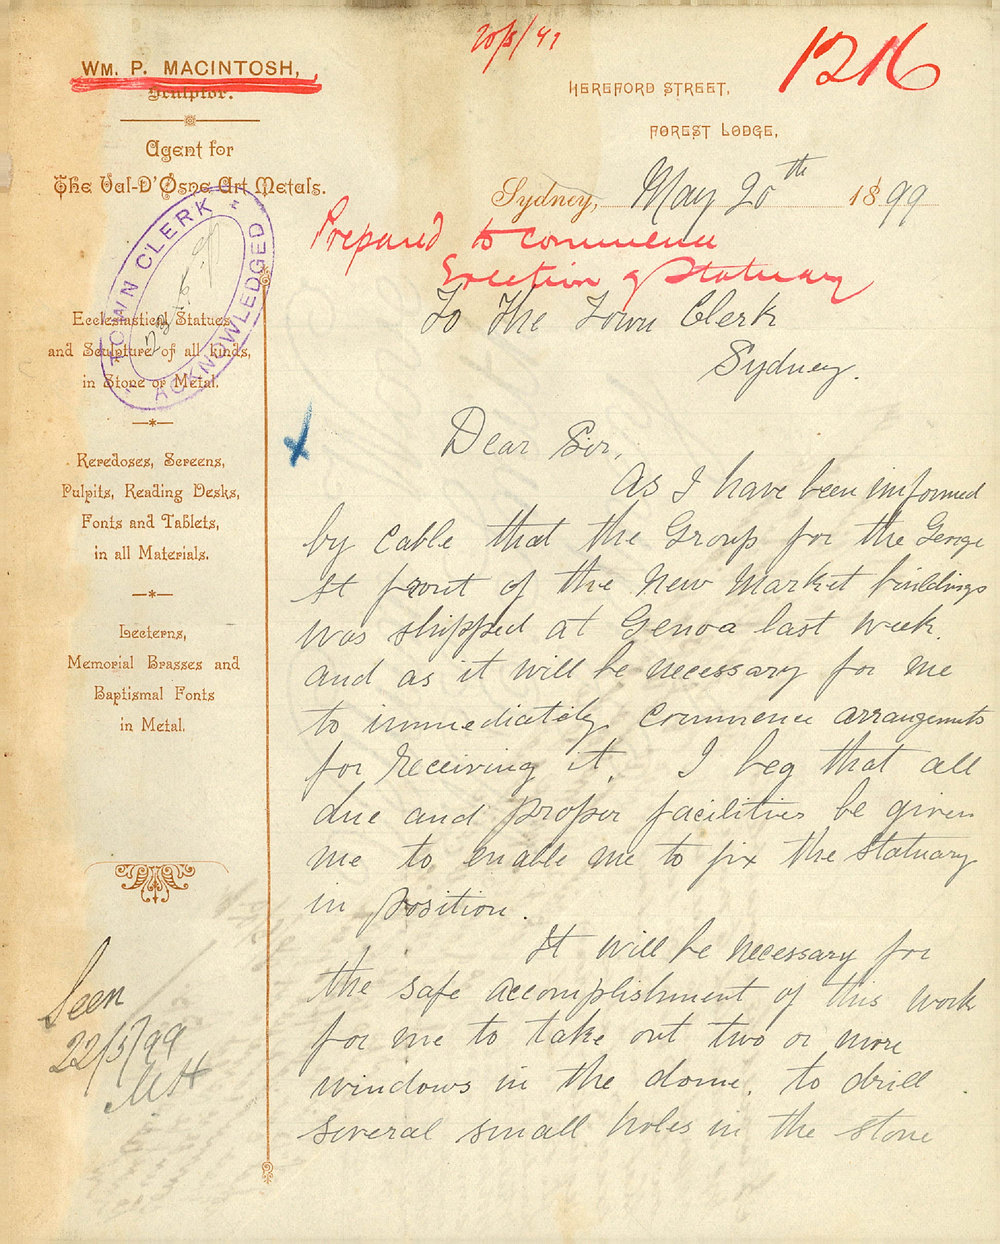 20/5/99
1216
WM. P. MACINTOSH,
Sculptor.
Agent for
The Val-D'Osne Art Metals.
HEREFORD STREET,
FOREST LODGE,
Sydney, May 20th 1899
Prepared to commence
Erection of Statuary
TOWN CLERK
ACKNOWLEDGED
Ecclesiastical Statues
and Sculpture of all kinds,
in Stone or Metal.
Reredoses, Screens,
Pulpits, Reading Desks,
Fonts and Tablets,
in all Materials.
Lecterns,
Memorial Brasses and
Baptismal Fonts
in Metal.
Seen
22/5/99
To The Town Clerk
Sydney.
Dear Sir,
As I have been informed
by cable that the Group for the George
St front of the New Market buildings
was shipped at Genoa last week.
and as it will be necessary for me
to immediately commence arrangements
for receiving it. I beg that all
due and proper facilities be given
me to enable me to fix the statuary
in position.
It will be necessary for
the safe accomplishment of this work
for me to take out two or more
windows in the dome. to drill
several small holes in the stone